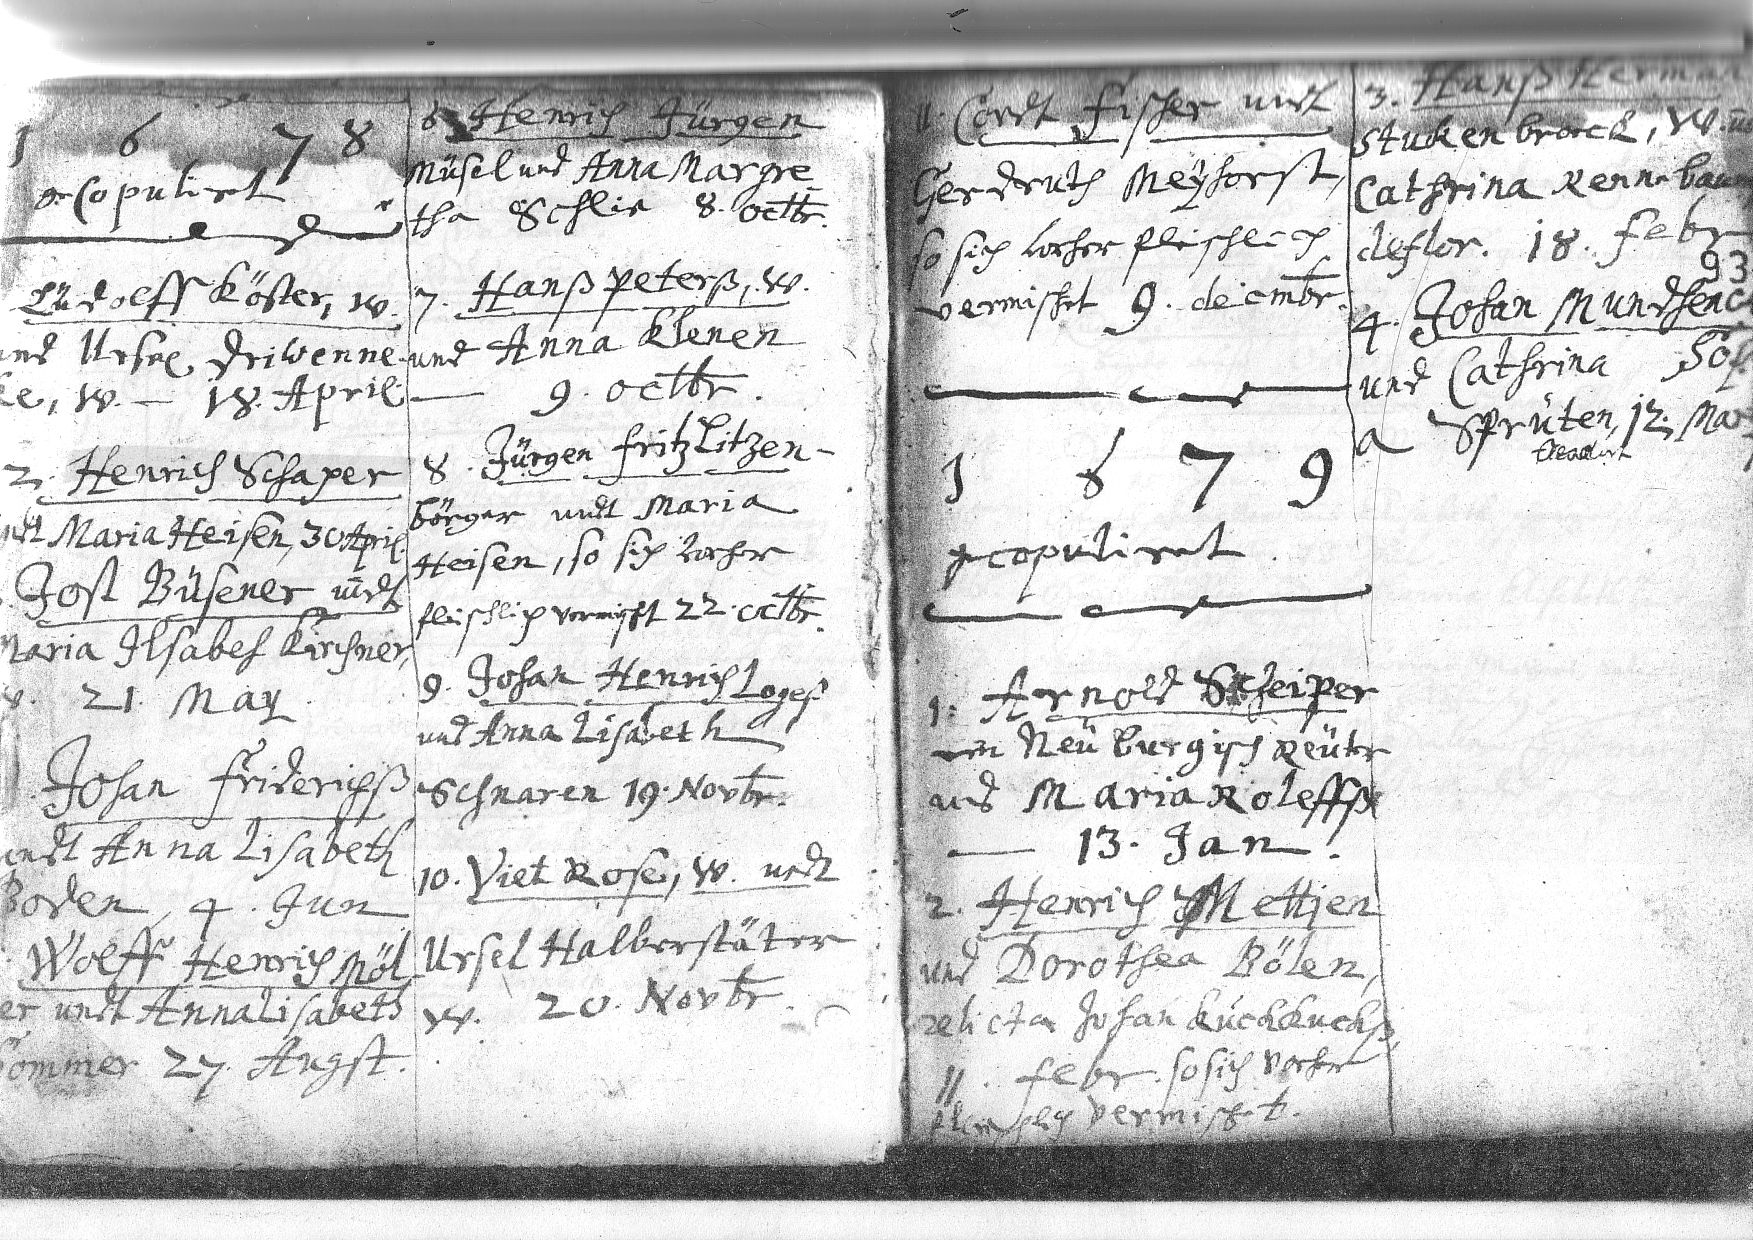 1 6 7 8
gecopuliret
Lüdolff Köster, w.
und Ursel Driwenne-
ke, w. — 18. April
2. Henrich Schaper
undt Maria Heisen, 30 April
Jost Büsener undt
Maria Ilsabeh Kirchner,
w. 21. May
Johan Friderichß
undt Anna Lisabeth
Boden, 4. Jun
Wolff Henrich Möl
er undt Anna Lisabeth
Sommer 27. Augst.
6. Henrich Jürgen
Müsel und Anna Margre
tha Schlie 8. octbr.
7. Hanß Peterß, w.
und Anna Klenen
— 9. octbr.
8. Jürgen Fritz Litzen-
börger undt Maria
Heisen, so sich vorher
fleischlich vermischt 22. octbr.
9. Johan Henrich Logeß
und Anna Lisabeth
Schnaren 19. Novbr.
10. Viet Rose, w. undt
Ursel Halberstäter
w. 20. Novbr.
11. Cordt Fischer undt
Gerdruth Meyhorst,
so sich vorher fleischlich
vermischt 9. decmbr.
1 6 7 9
gecopuliret
1. Arnold Scheiper
ein Neüburgisch Reüter
und Maria Roleffß
— 13. Jan.
2. Henrich Mettjen
und Dorothea Bölen,
relicta Johan Kuckkuckß,
11. febr. so sich vorher
fleischlich vermischt.
3. Hanß Herman
Stukenbrock, w. un
Cathrina Rennebaum
deflor. 18. febr
93
4. Johan Mundhenc
und Cathrina Sop
a Sprüten, 12. Mar